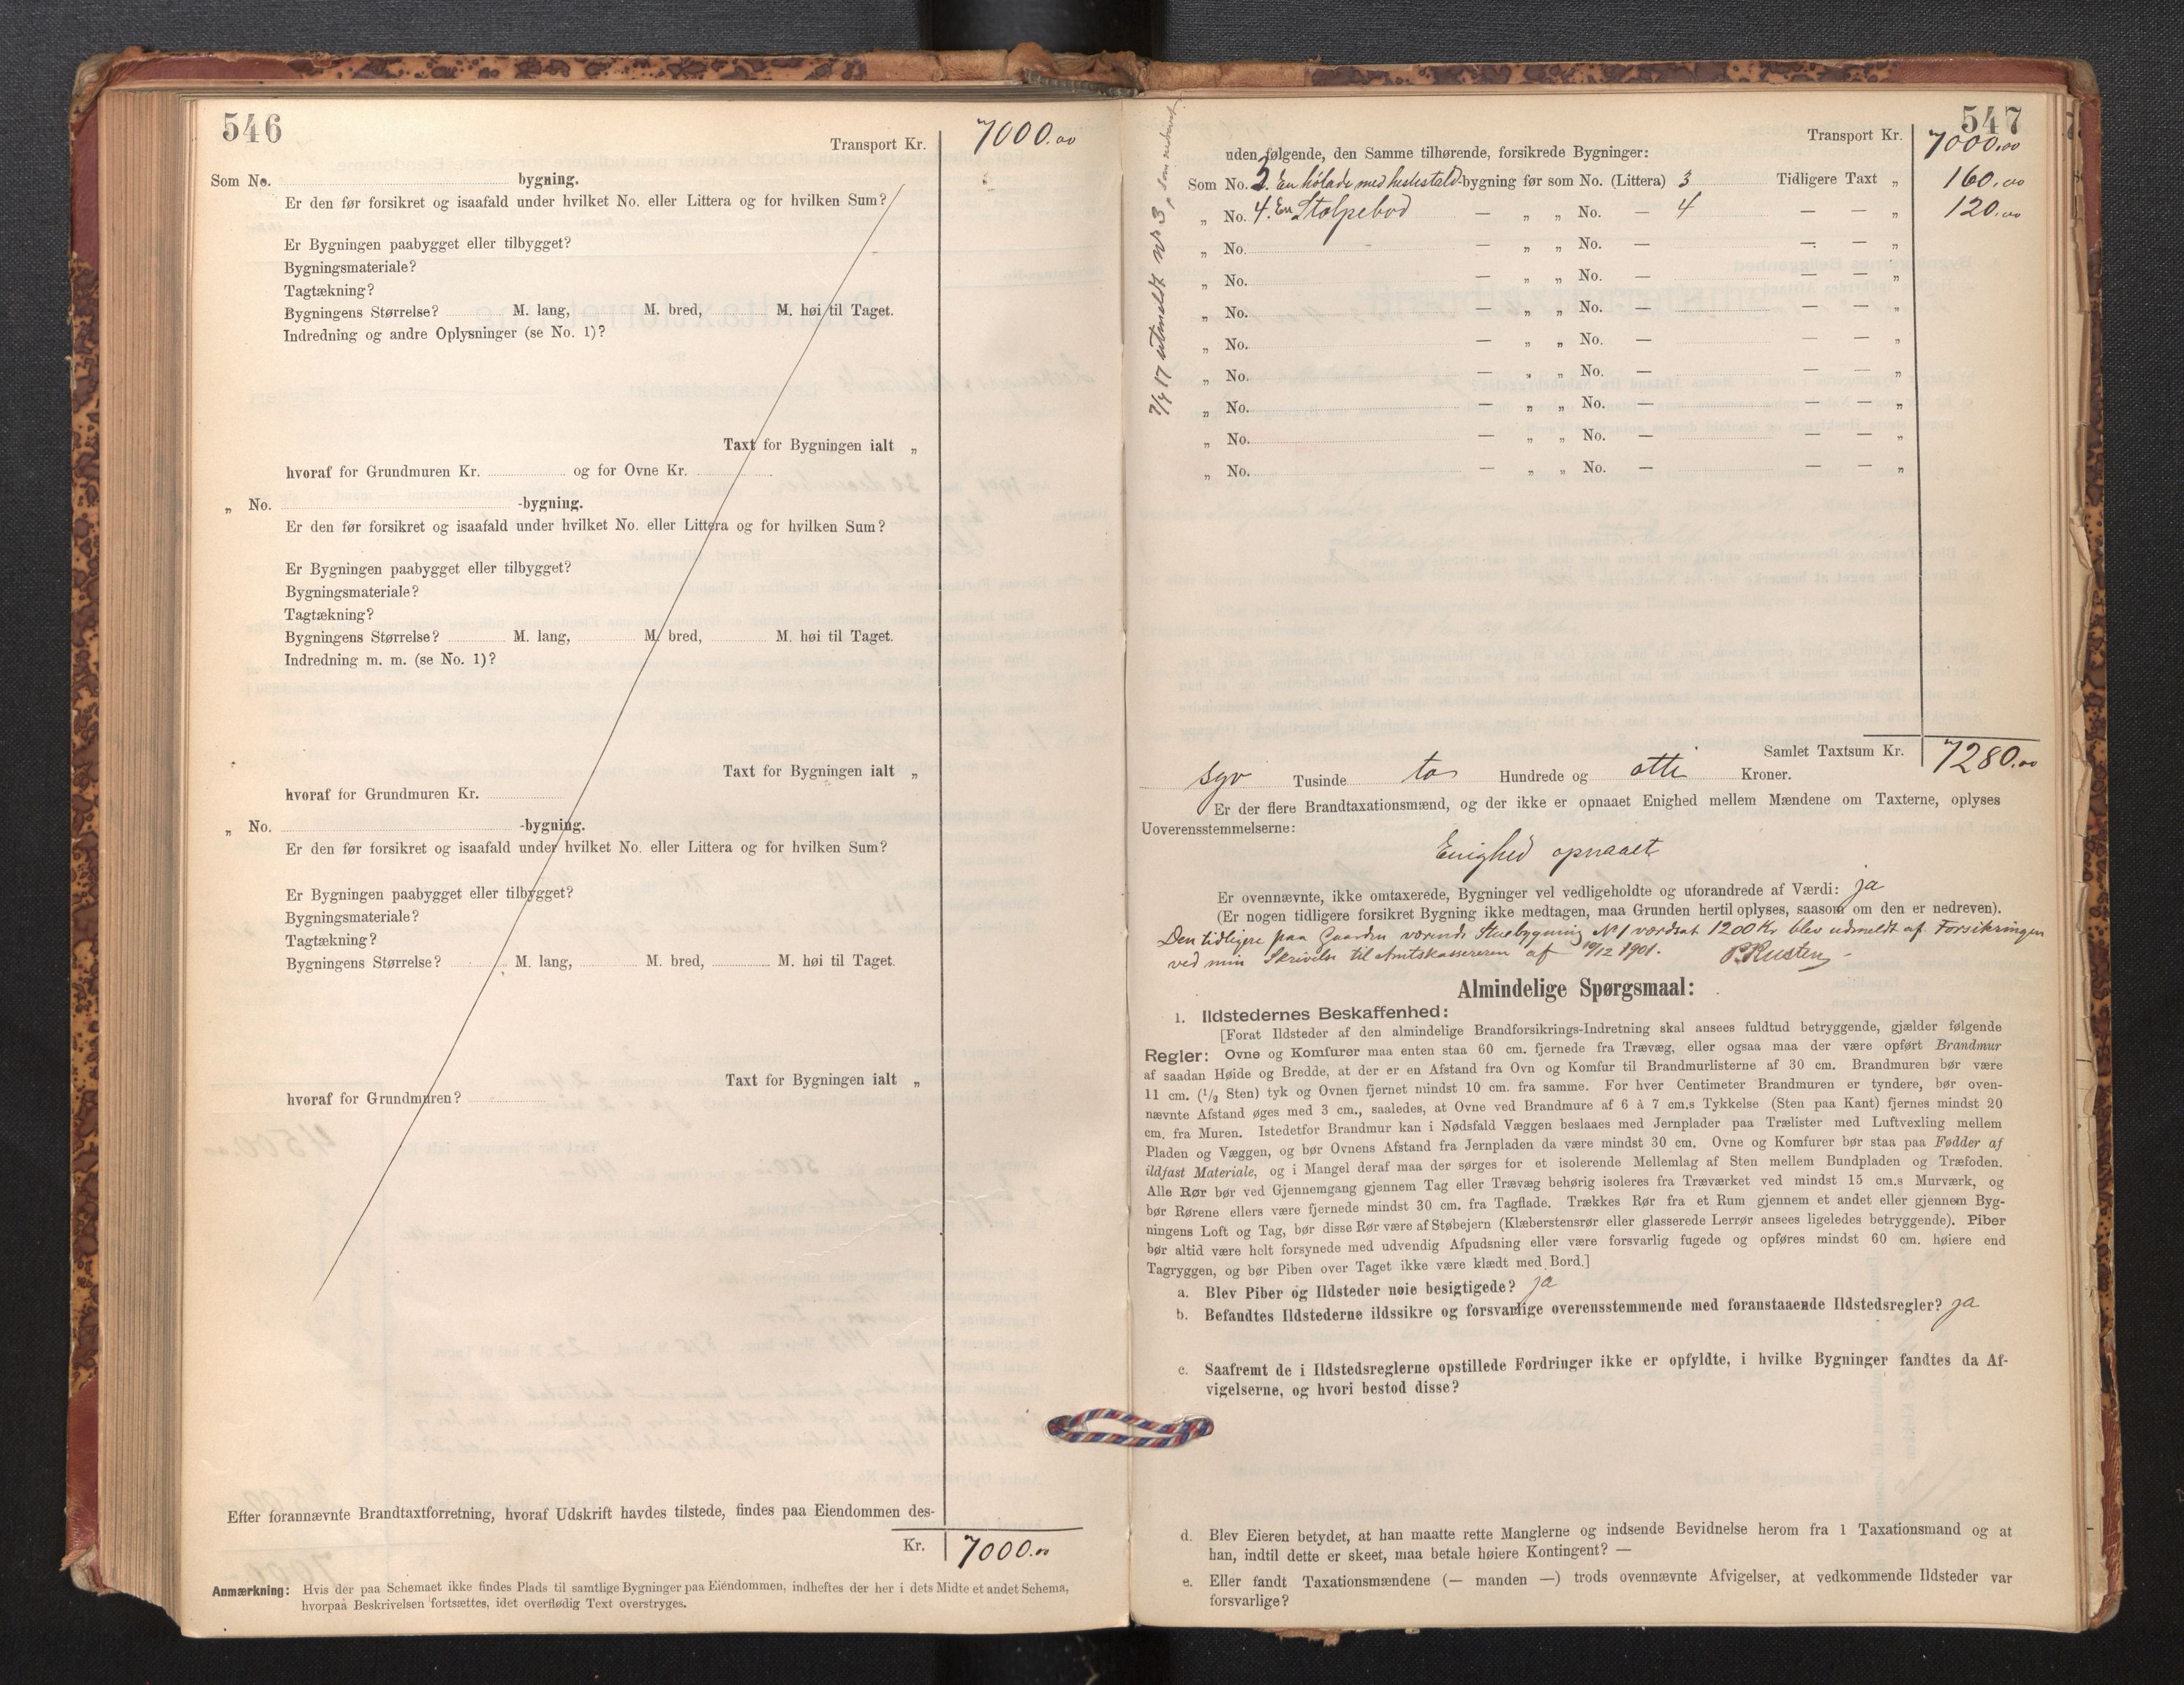 546
Transport Kr. 7000.00
Som No. bygning.
Er den før forsikret og isaafald under hvilket No. eller Littera og for hvilken Sum?
Er Bygningen paabygget eller tilbygget?
Bygningsmateriale?
Tagtækning?
Bygningens Størrelse? M. lang, M. bred, M. høi til Taget.
Indredning og andre Oplysninger (se No. 1)?
Taxt for Bygningen ialt „
hvoraf for Grundmuren Kr. og for Ovne Kr.
„ No. -bygning.
Er den før forsikret og isaafald under hvilket No. eller Littera og for hvilken Sum?
Er Bygningen paabygget eller tilbygget?
Bygningsmateriale?
Tagtækning?
Bygningens Størrelse? M. lang, M. bred, M. høi til Taget.
Indredning m. m. (se No. 1)?
Taxt for Bygningen ialt „
hvoraf for Grundmuren Kr.
„ No. -bygning.
Er den før forsikret og isaafald under hvilket No. eller Littera og for hvilken Sum?
Er Bygningen paabygget eller tilbygget?
Bygningsmateriale?
Tagtækning?
Bygningens Størrelse? M. lang, M. bred, M. høi til Taget.
Taxt for Bygningen ialt „
hvoraf for Grundmuren?
Efter forannævnte Brandtaxtforretning, hvoraf Udskrift havdes tilstede, findes paa Eiendommen des-
Kr. 7000.00
Anmærkning: Hvis der paa Schemaet ikke findes Plads til samtlige Bygninger paa Eiendommen, indheftes der her i dets Midte et andet Schema,
hvorpaa Beskrivelsen fortsættes, idet overflødig Text overstryges.
547
Transport Kr. 7000.00
uden følgende, den Samme tilhørende, forsikrede Bygninger:
Som No. 3. En hölade med hestestald-bygning før som No. (Littera) 3 Tidligere Taxt „ 160.00
„ No. 4. En Stolpebod — „ „ No. — 4 — — „ 120.00
„ No. — „ „ No. — — — „
„ No. — „ „ No. — — — „
„ No. — „ „ No. — — — „
„ No. — „ „ No. — — — „
„ No. — „ „ No. — — — „
„ No. — „ „ No. — — — „
„ No. — „ „ No. — — — „
„ No. — „ „ No. — — — „
7/4 17 utmeldt No 3, som nedrevet.
Samlet Taxtsum Kr. 7280.00
syv Tusinde to Hundrede og otti Kroner.
Er der flere Brandtaxationsmænd, og der ikke er opnaaet Enighed mellem Mændene om Taxterne, oplyses
Uoverensstemmelserne:
Enighed opnaaet
Er ovennævnte, ikke omtaxerede, Bygninger vel vedligeholdte og uforandrede af Værdi: ja
(Er nogen tidligere forsikret Bygning ikke medtagen, maa Grunden hertil oplyses, saasom om den er nedreven).
Den tidligere paa Gaarden værende Stuebygning No 1 værdsat 1200 Kr blev udmeldt af Forsikringen
ved min Skrivelse til Amtskassereren af 10/12 1901. P. Rusten
Almindelige Spørgsmaal:
1. Ildstedernes Beskaffenhed:
[Forat Ildsteder af den almindelige Brandforsikrings-Indretning skal ansees fuldtud betryggende, gjælder følgende
Regler: Ovne og Komfurer maa enten staa 60 cm. fjernede fra Trævæg, eller ogsaa maa der være opført Brandmur
af saadan Høide og Bredde, at der er en Afstand fra Ovn og Komfur til Brandmurlisterne af 30 cm. Brandmuren bør være
11 cm. (1/2 Sten) tyk og Ovnen fjernet mindst 10 cm. fra samme. For hver Centimeter Brandmuren er tyndere, bør oven-
nævnte Afstand øges med 3 cm., saaledes, at Ovne ved Brandmure af 6 à 7 cm.s Tykkelse (Sten paa Kant) fjernes mindst 20
cm. fra Muren. Istedetfor Brandmur kan i Nødsfald Væggen beslaaes med Jernplader paa Trælister med Luftvexling mellem
Pladen og Væggen, og bør Ovnens Afstand fra Jernpladen da være mindst 30 cm. Ovne og Komfurer bør staa paa Fødder af
ildfast Materiale, og i Mangel deraf maa der sørges for et isolerende Mellemlag af Sten mellem Bundpladen og Træfoden.
Alle Rør bør ved Gjennemgang gjennem Tag eller Trævæg behørig isoleres fra Træværket ved mindst 15 cm.s Murværk, og
bør Rørene ellers være fjernede mindst 30 cm. fra Tagflade. Trækkes Rør fra et Rum gjennem et andet eller gjennem Byg-
ningens Loft og Tag, bør disse Rør være af Støbejern (Klæberstensrør eller glasserede Lerrør ansees ligeledes betryggende). Piber
bør altid være helt forsynede med udvendig Afpudsning eller være forsvarlig fugede og opføres mindst 60 cm. høiere end
Tagryggen, og bør Piben over Taget ikke være klædt med Bord.]
a. Blev Piber og Ildsteder nøie besigtigede? ja
b. Befandtes Ildstederne ildssikre og forsvarlige overensstemmende med foranstaaende Ildstedsregler? ja
c. Saafremt de i Ildstedsreglerne opstillede Fordringer ikke er opfyldte, i hvilke Bygninger fandtes da Af-
vigelserne, og hvori bestod disse?
d. Blev Eieren betydet, at han maatte rette Manglerne og indsende Bevidnelse herom fra 1 Taxationsmand og at
han, indtil dette er skeet, maa betale høiere Kontingent? —
e. Eller fandt Taxationsmændene (— manden —) trods ovennævnte Afvigelser, at vedkommende Ildsteder var
forsvarlige?